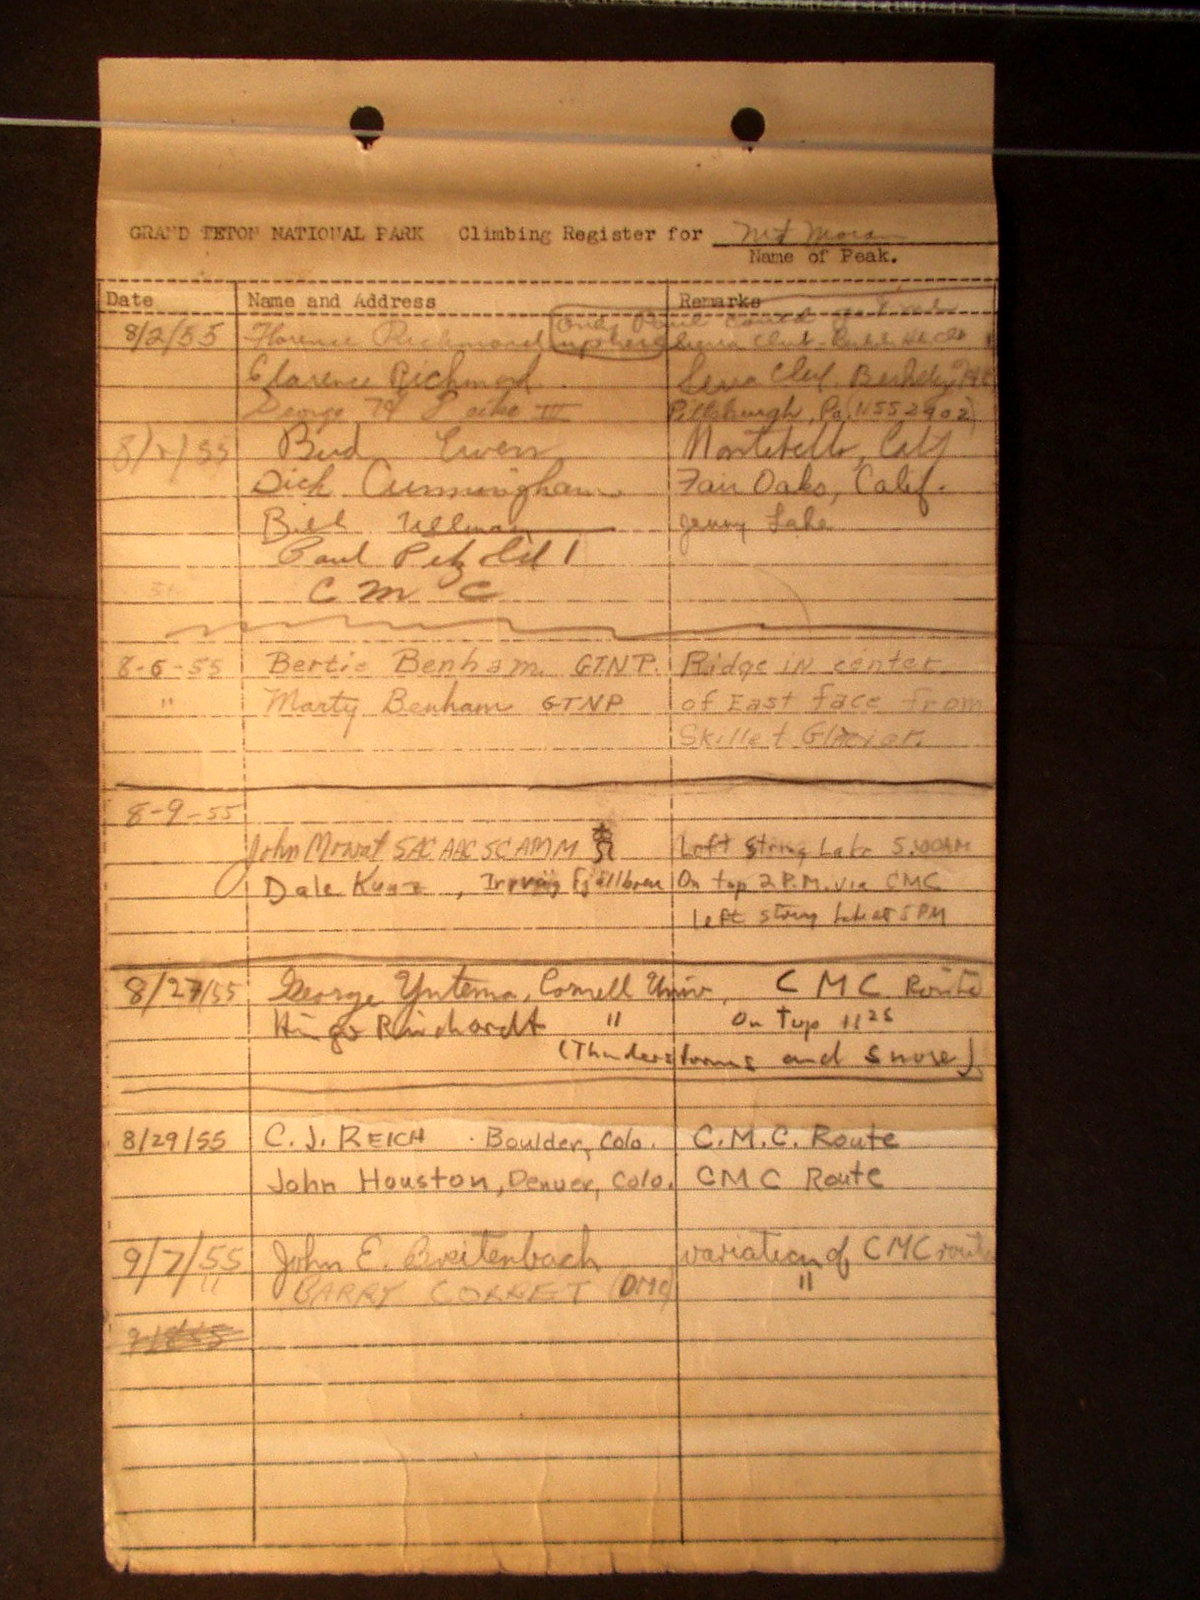 GRAND TETON NATIONAL PARK Climbing Register for Mt Moran
Name of Peak.
Date Name and Address Remarks
8/2/55 Florence Richmond Sierra Club
Clarence Richmond Sierra Club Berkeley
George III Pittsburgh, Pa (N552902)
8/2/55 Bud Ewen Montebello, Calif
Dick Cunningham Fair Oaks, Calif.
Bill Ullman Jenny Lake
Paul Petzoldt
C M C
8-6-55 Bertie Benham. GTNP. Ridge in center
" Marty Benham GTNP of East face from
Skillet Glacier.
8-9-55
John Mowat SAC AAC SC AMM Left String Lake 5:00AM
Dale , On top 2 P.M. via CMC
left string lake at 5 PM
8/27/55 George Yntema, Cornell Univ, CMC Route
" On Top 11 25
(Thunderstorms and snow)
8/29/55 C. J. REICH Boulder, Colo. C.M.C. Route
John Houston, Denver, Colo. CMC Route
9/7/55 John E. Breitenbach variation of CMC route
" BARRY CORBET (DMC) "